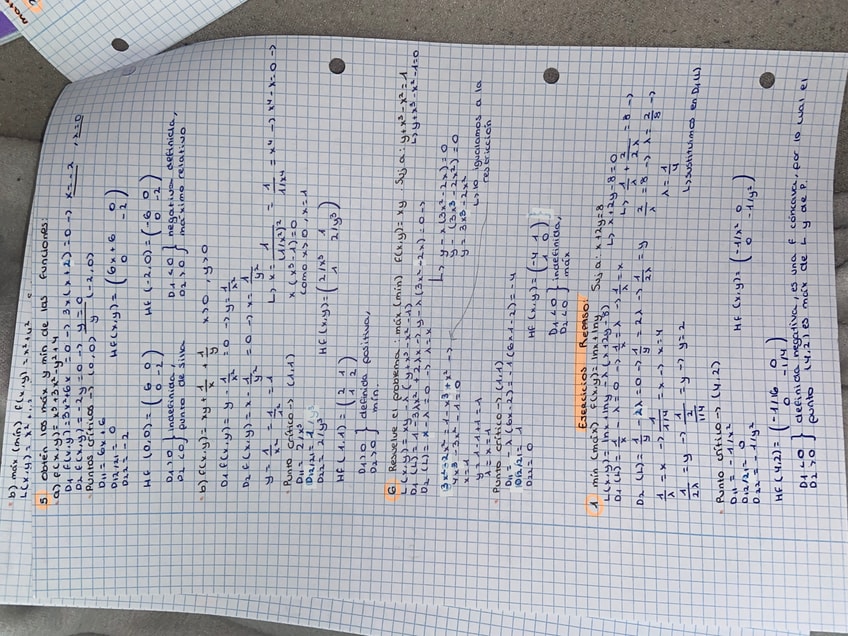 b) máx (min) f(x,y) = x²+y²
L(x,y) = x²
5 obtén los máx y mín de las funciones:
a) f(x,y) = x³+3x²-y²+4
D1 f(x,y) = 3x²+6x = 0 → 3x(x+2) = 0 → x=-2, x=0
D2 f(x,y) = -2y = 0 → y=0
Puntos críticos → (0,0) y (-2,0)
D11 = 6x+6
D12/21 = 0
D22 = -2
Hf(x,y) = (6x+6 0
0 -2)
Hf(0,0) = (6 0
0 -2)
Hf(-2,0) = (-6 0
0 -2)
D1>0 } indefinida,
D2<0 } punto de silla
D1<0 } negativa definida,
D2>0 } máximo relativo
b) f(x,y) = xy + 1/x + 1/y x>0, y>0
D1 f(x,y) = y - 1/x² = 0 → y = 1/x²
D2 f(x,y) = x - 1/y² = 0 → x = 1/y²
↳ x = 1/(1/x²)² = 1/1/x⁴ = x⁴ → x⁴-x=0 →
x(x³-1)=0
como x>0, x=1
y = 1/x² = 1/1 = 1
Punto crítico → (1,1)
D11 = 2/x³
D12/21 = 1
D22 = 2/y³
Hf(x,y) = (2/x³ 1
1 2/y³)
Hf(1,1) = (2 1
1 2)
D1>0 } definida positiva,
D2>0 } mín.
6 Resuelve el problema: máx (min) f(x,y) = xy Suj a: y+x³-x²=1
↳ y+x³-x²-1=0
L(x,y) = xy - λ(y+x³-x²-1)
D1(L) = y - 3λx²+2λx → y - λ(3x²-2x) = 0 →
D2(L) = x - λ = 0 → λ=x
↳ y = λ(3x²-2x) = 0
y = (3x³-2x²) = 0
y = 3x³-2x²
↳ lo igualamos a la
restricción
3x³-2x²-1-x³+x² →
4x³-3x²-1=0
x=1
y=1-1+1=1
λ=x=1
Punto crítico → (1,1)
D11 = -λ(6x-2) = -1(6×1-2) = -4
D12/21 = 1
D22 = 0
Hf(x,y) = (-4 1
1 0)
D1<0 } indefinida,
D2<0 } máx
Ejercicios Repaso:
1 min (máx) f(x,y) = lnx+lny Suj a: x+2y=8
L(x,y) = lnx+lny - λ(x+2y-8) ↳ x+2y-8=0
D1(L) = 1/x - λ = 0 → 1/x = λ → 1/λ = x
↳ 1/λ + 2/2λ = 8 →
D2(L) = 1/y - 2λ = 0 → 1/y = 2λ → 1/2λ = y
2/λ = 8 → λ = 2/8 →
λ = 1/4
↳ sustituimos en D1(L)
1/λ = x → 1/1/4 = x → x=4
1/2λ = y → 1/2/4 = y → y=2
Punto crítico → (4,2)
D11 = -1/x²
D12/21 = 0
D22 = -1/y²
Hf(x,y) = (-1/x² 0
0 -1/y²)
Hf(4,2) = (-1/16 0
0 -1/4)
D1<0 } definida negativa, es una f cóncava, por lo cual el
D2>0 } punto (4,2) es máx de L y de P.